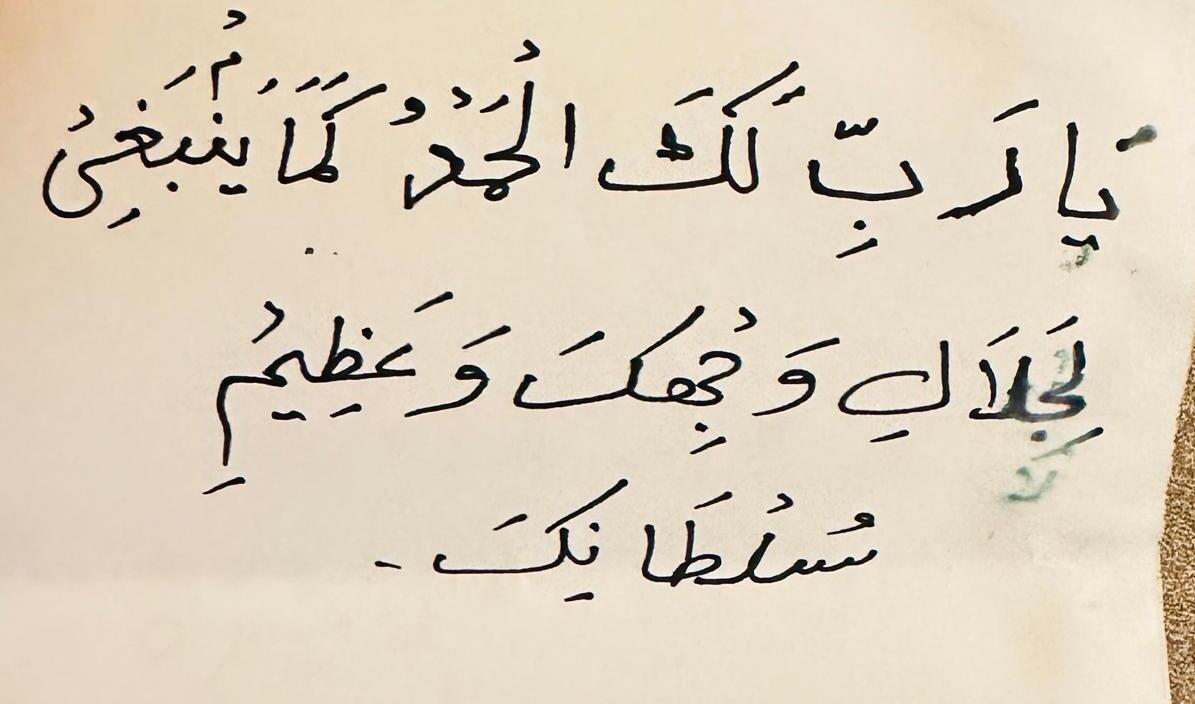 يَا رَبِّ لَكَ الْحَمْدُ كَمَا يَنْبَغِيْ
لِجَلَالِ وَجْهِكَ وَعَظِيْمِ
سُلْطَانِكَ۔